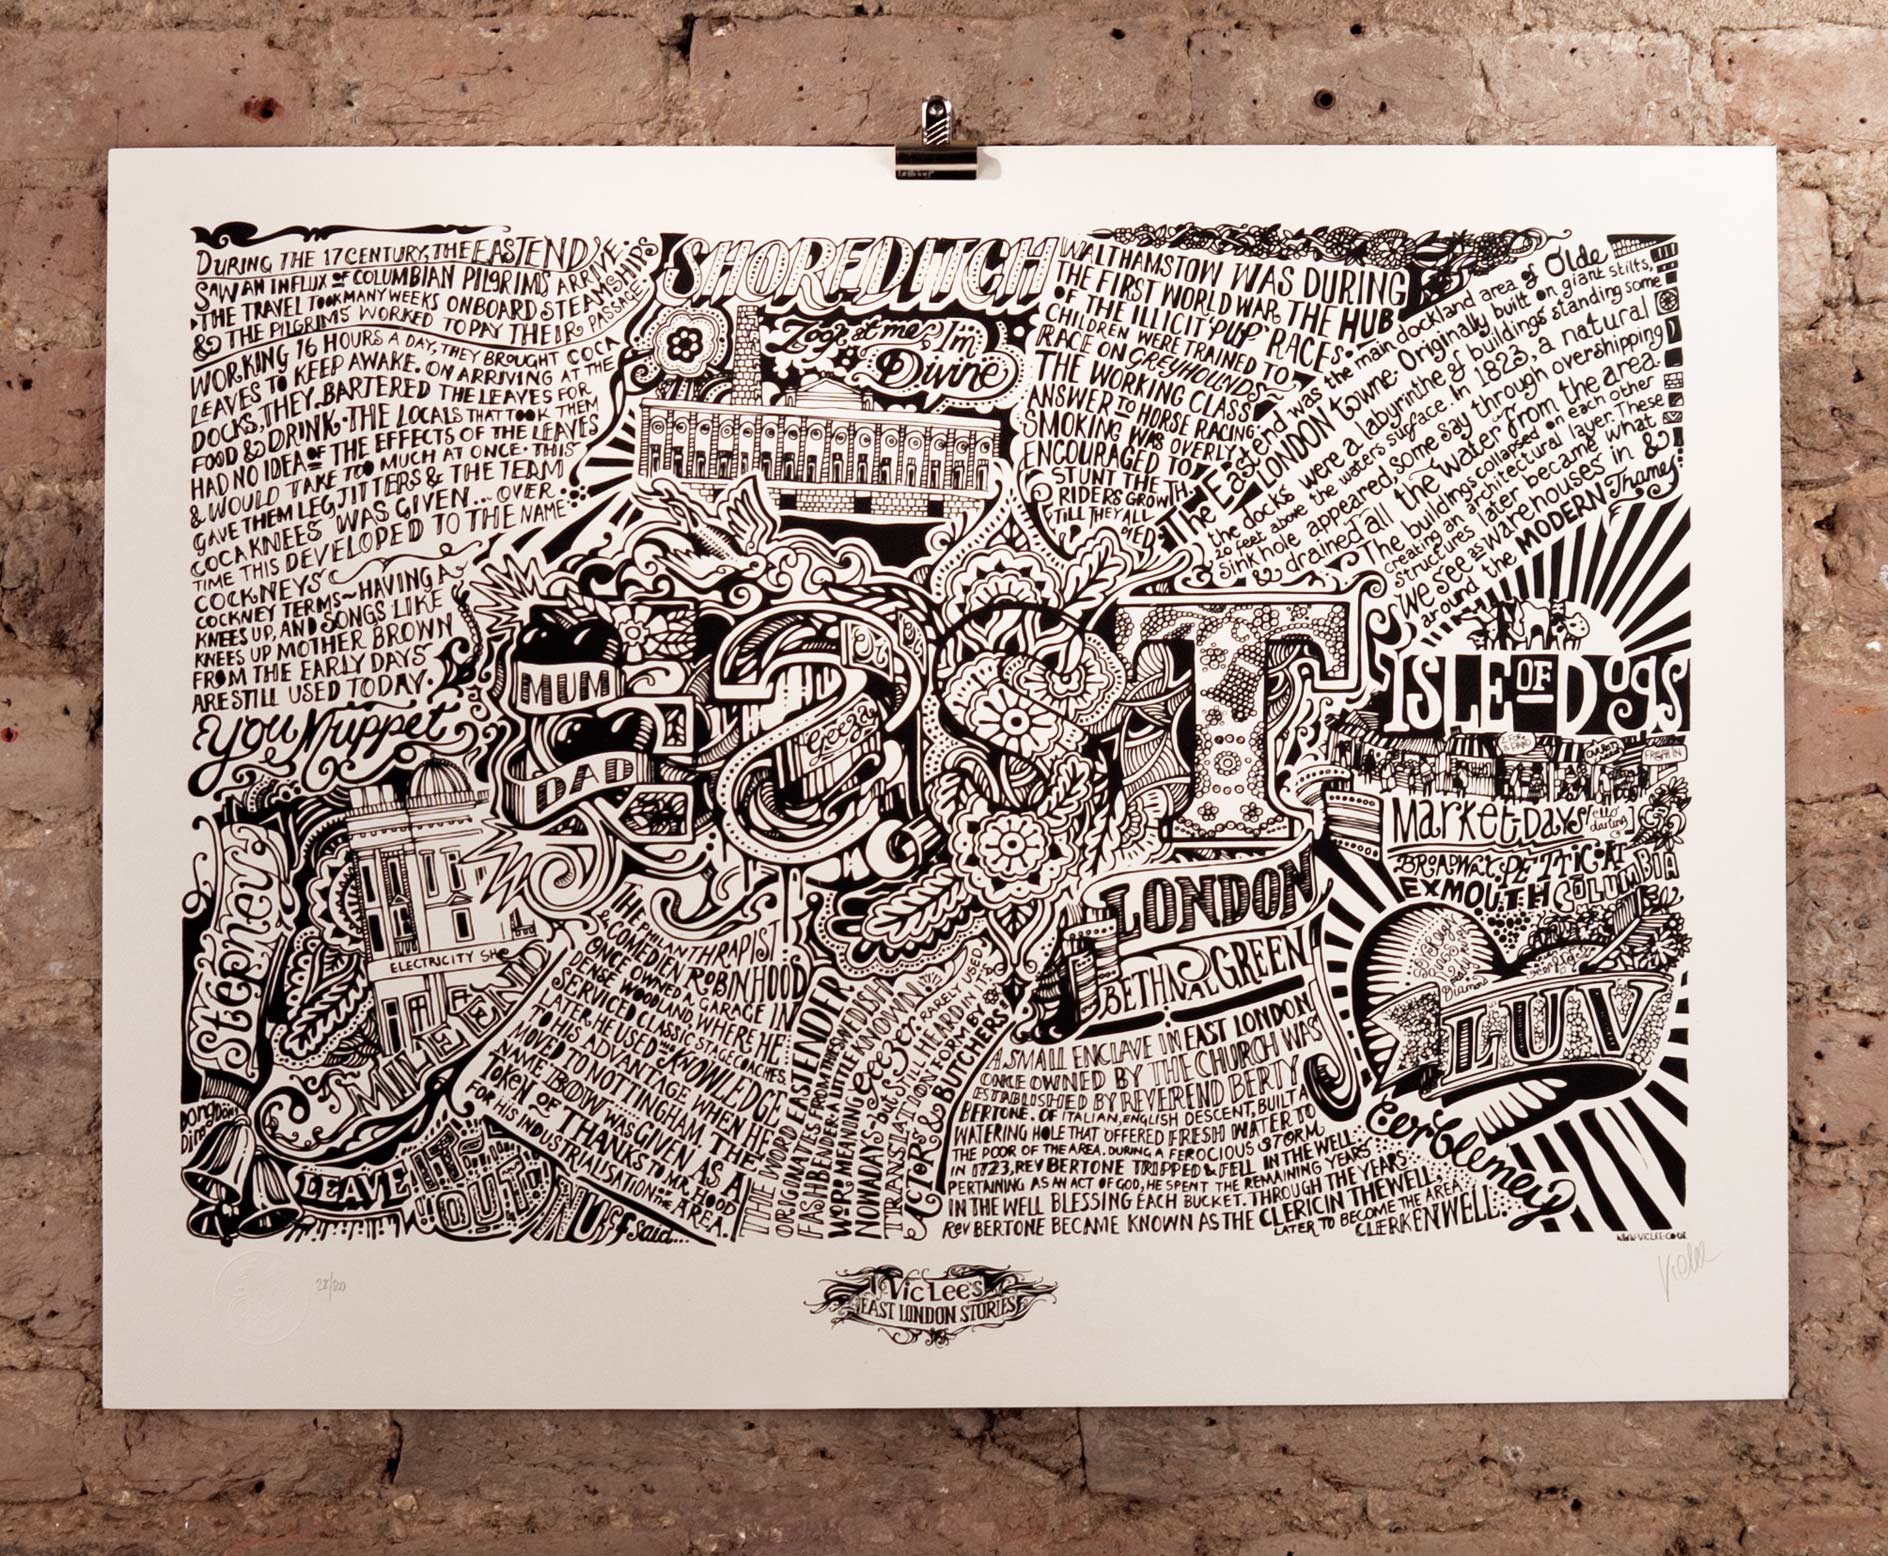 DURING THE 17 CENTURY, THE EAST END
SAW AN INFLUX OF COLUMBIAN PILGRIMS ARRIVE.
THE TRAVEL TOOK MANY WEEKS ONBOARD STEAMSHIPS
& THE PILGRIMS WORKED TO PAY THEIR PASSAGE.
WORKING 16 HOURS A DAY, THEY BROUGHT COCA
LEAVES TO KEEP AWAKE. ON ARRIVING AT THE
DOCKS, THEY BARTERED THE LEAVES FOR
FOOD & DRINK. THE LOCALS THAT TOOK THEM
HAD NO IDEA OF THE EFFECTS OF THE LEAVES
& WOULD TAKE TOO MUCH AT ONCE. THIS
GAVE THEM LEG JITTERS & THE TERM
COCAKNEES WAS GIVEN... OVER
TIME THIS DEVELOPED TO THE NAME
COCKNEYS
COCKNEY TERMS~HAVING A
KNEES UP, AND SONGS LIKE
KNEES UP MOTHER BROWN
FROM THE EARLY DAYS
ARE STILL USED TODAY.
You Muppet
SHOREDITCH
Look at me, I'm
Divine
WALTHAMSTOW WAS DURING
THE FIRST WORLD WAR THE HUB
OF THE ILLICIT 'PUP' RACES.
CHILDREN WERE TRAINED TO
RACE ON GREYHOUNDS~
THE WORKING CLASS
ANSWER TO HORSE RACING.
SMOKING WAS OVERLY
ENCOURAGED TO
STUNT THE
RIDERS GROWTH,
TILL THEY ALL
DIED.
The Eastend was the main dockland area of Olde
LONDON towne. Originally built on giant stilts,
the docks were a labyrinthe of buildings standing some
20 feet above the waters surface. In 1823, a natural
sink hole appeared, some say through overshipping
& drained all the water from the area.
The buildings collapsed on each other
creating an architectural layer. These
structures later became what
we see as warehouses in &
around the MODERN Thames
EAST
MUM
DAD
Geeza
ISLE OF DOGS
MARKET-DAYS
'ello darling
BROADWAY, PETTICOAT
EXMOUTH COLUMBIA
LONDON
BETHNAL GREEN
LUV
Cor blimey
Stepney
ELECTRICITY
MILE END
Dong
Ding
LEAVE IT OUT
THE PHILANTHRAPIST
& COMEDIEN ROBINHOOD
ONCE OWNED A GARAGE IN
DENSE WOODLAND, WHERE HE
SERVICED CLASSIC STAGE COACHES.
LATER, HE USED HIS KNOWLEDGE
TO HIS ADVANTAGE WHEN HE
MOVED TO NOTTINGHAM. THE
NAME BOOW WAS GIVEN AS A
TOKEN OF THANKS TO MR HOOD
FOR HIS INDUSTRIALISATION OF THE AREA.
NUFF said...
THE WORD EASTENDER
ORIGONATIES FROM THE SWEDISH
FASHBENDER-A LITTLE KNOWN
WORD MEANING Geezer. RARELY USED
NOWADAYS-but STILL HEARD IN ITS
TRANSLATION FORM BY
ACTORS & BUTCHERS
A SMALL ENCLAVE IN EAST LONDON
ONCE OWNED BY THE CHURCH WAS
ESTABLISHED BY REVEREND BERTY
BERTONE. OF ITALIAN, ENGLISH DESCENT, BUILT A
WATERING HOLE THAT OFFERED FRESH WATER TO
THE POOR OF THE AREA. DURING A FEROCIOUS STORM
IN 1723, REV BERTONE TRIPPED & FELL IN THE WELL.
PERTAINING AS AN ACT OF GOD, HE SPENT THE REMAINING YEARS
IN THE WELL BLESSING EACH BUCKET. THROUGH THE YEARS
REV BERTONE BECAME KNOWN AS THE CLERIC IN THE WELL,
LATER TO BECOME THE AREA
CLERKENWELL.
WWW.VICLEE.CO.UK
VIC LEE'S
EAST LONDON STORIES